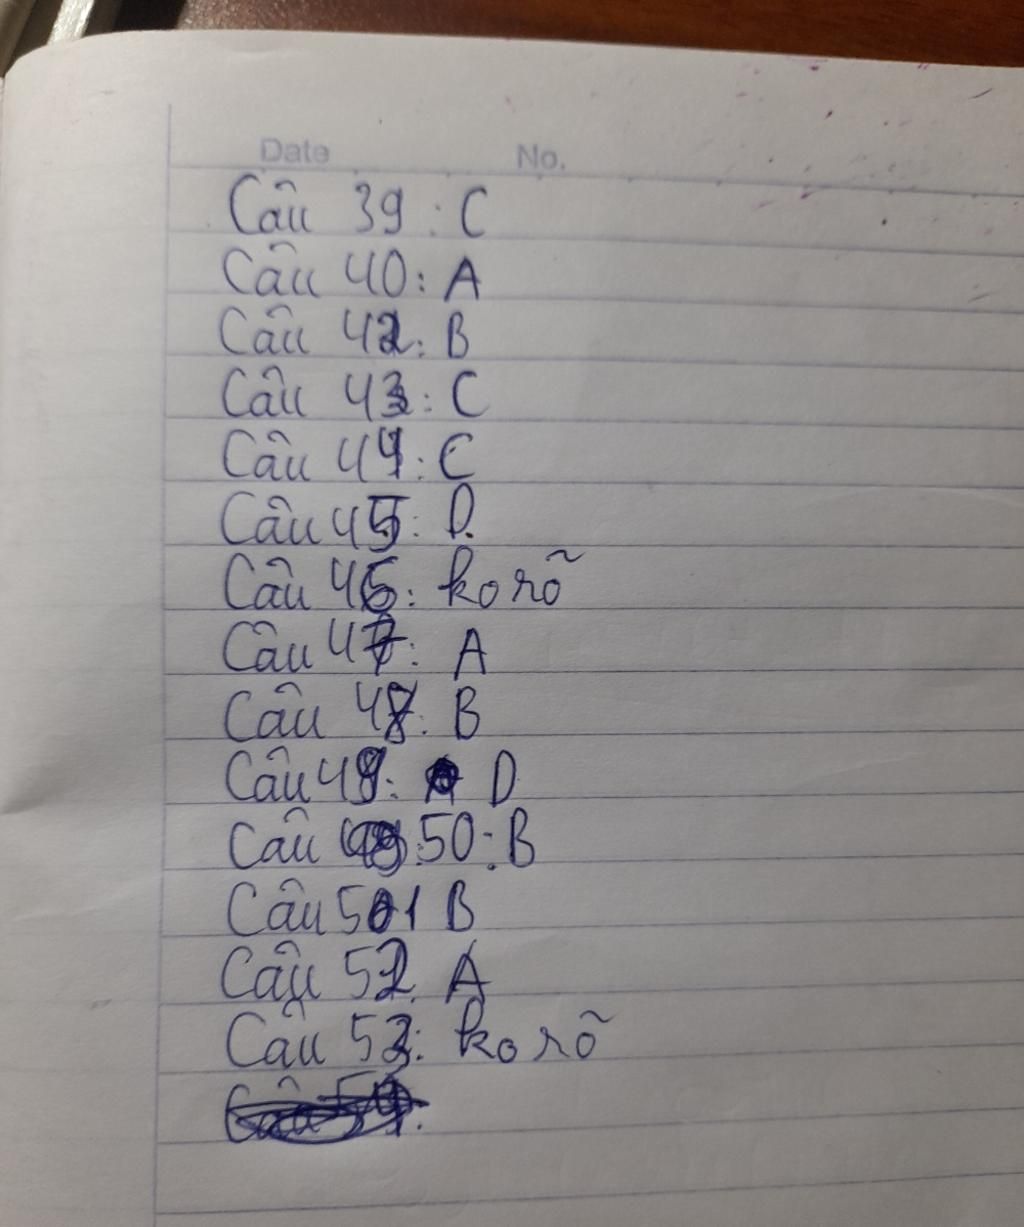 Date No.
Câu 39: C
Câu 40: A
Câu 42: B
Câu 43: C
Câu 44: C
Câu 45: D.
Câu 46: ko rõ
Câu 47: A
Câu 48: B
Câu 49: D
Câu 50: B
Câu 51 B
Câu 52. A
Câu 53: ko rõ